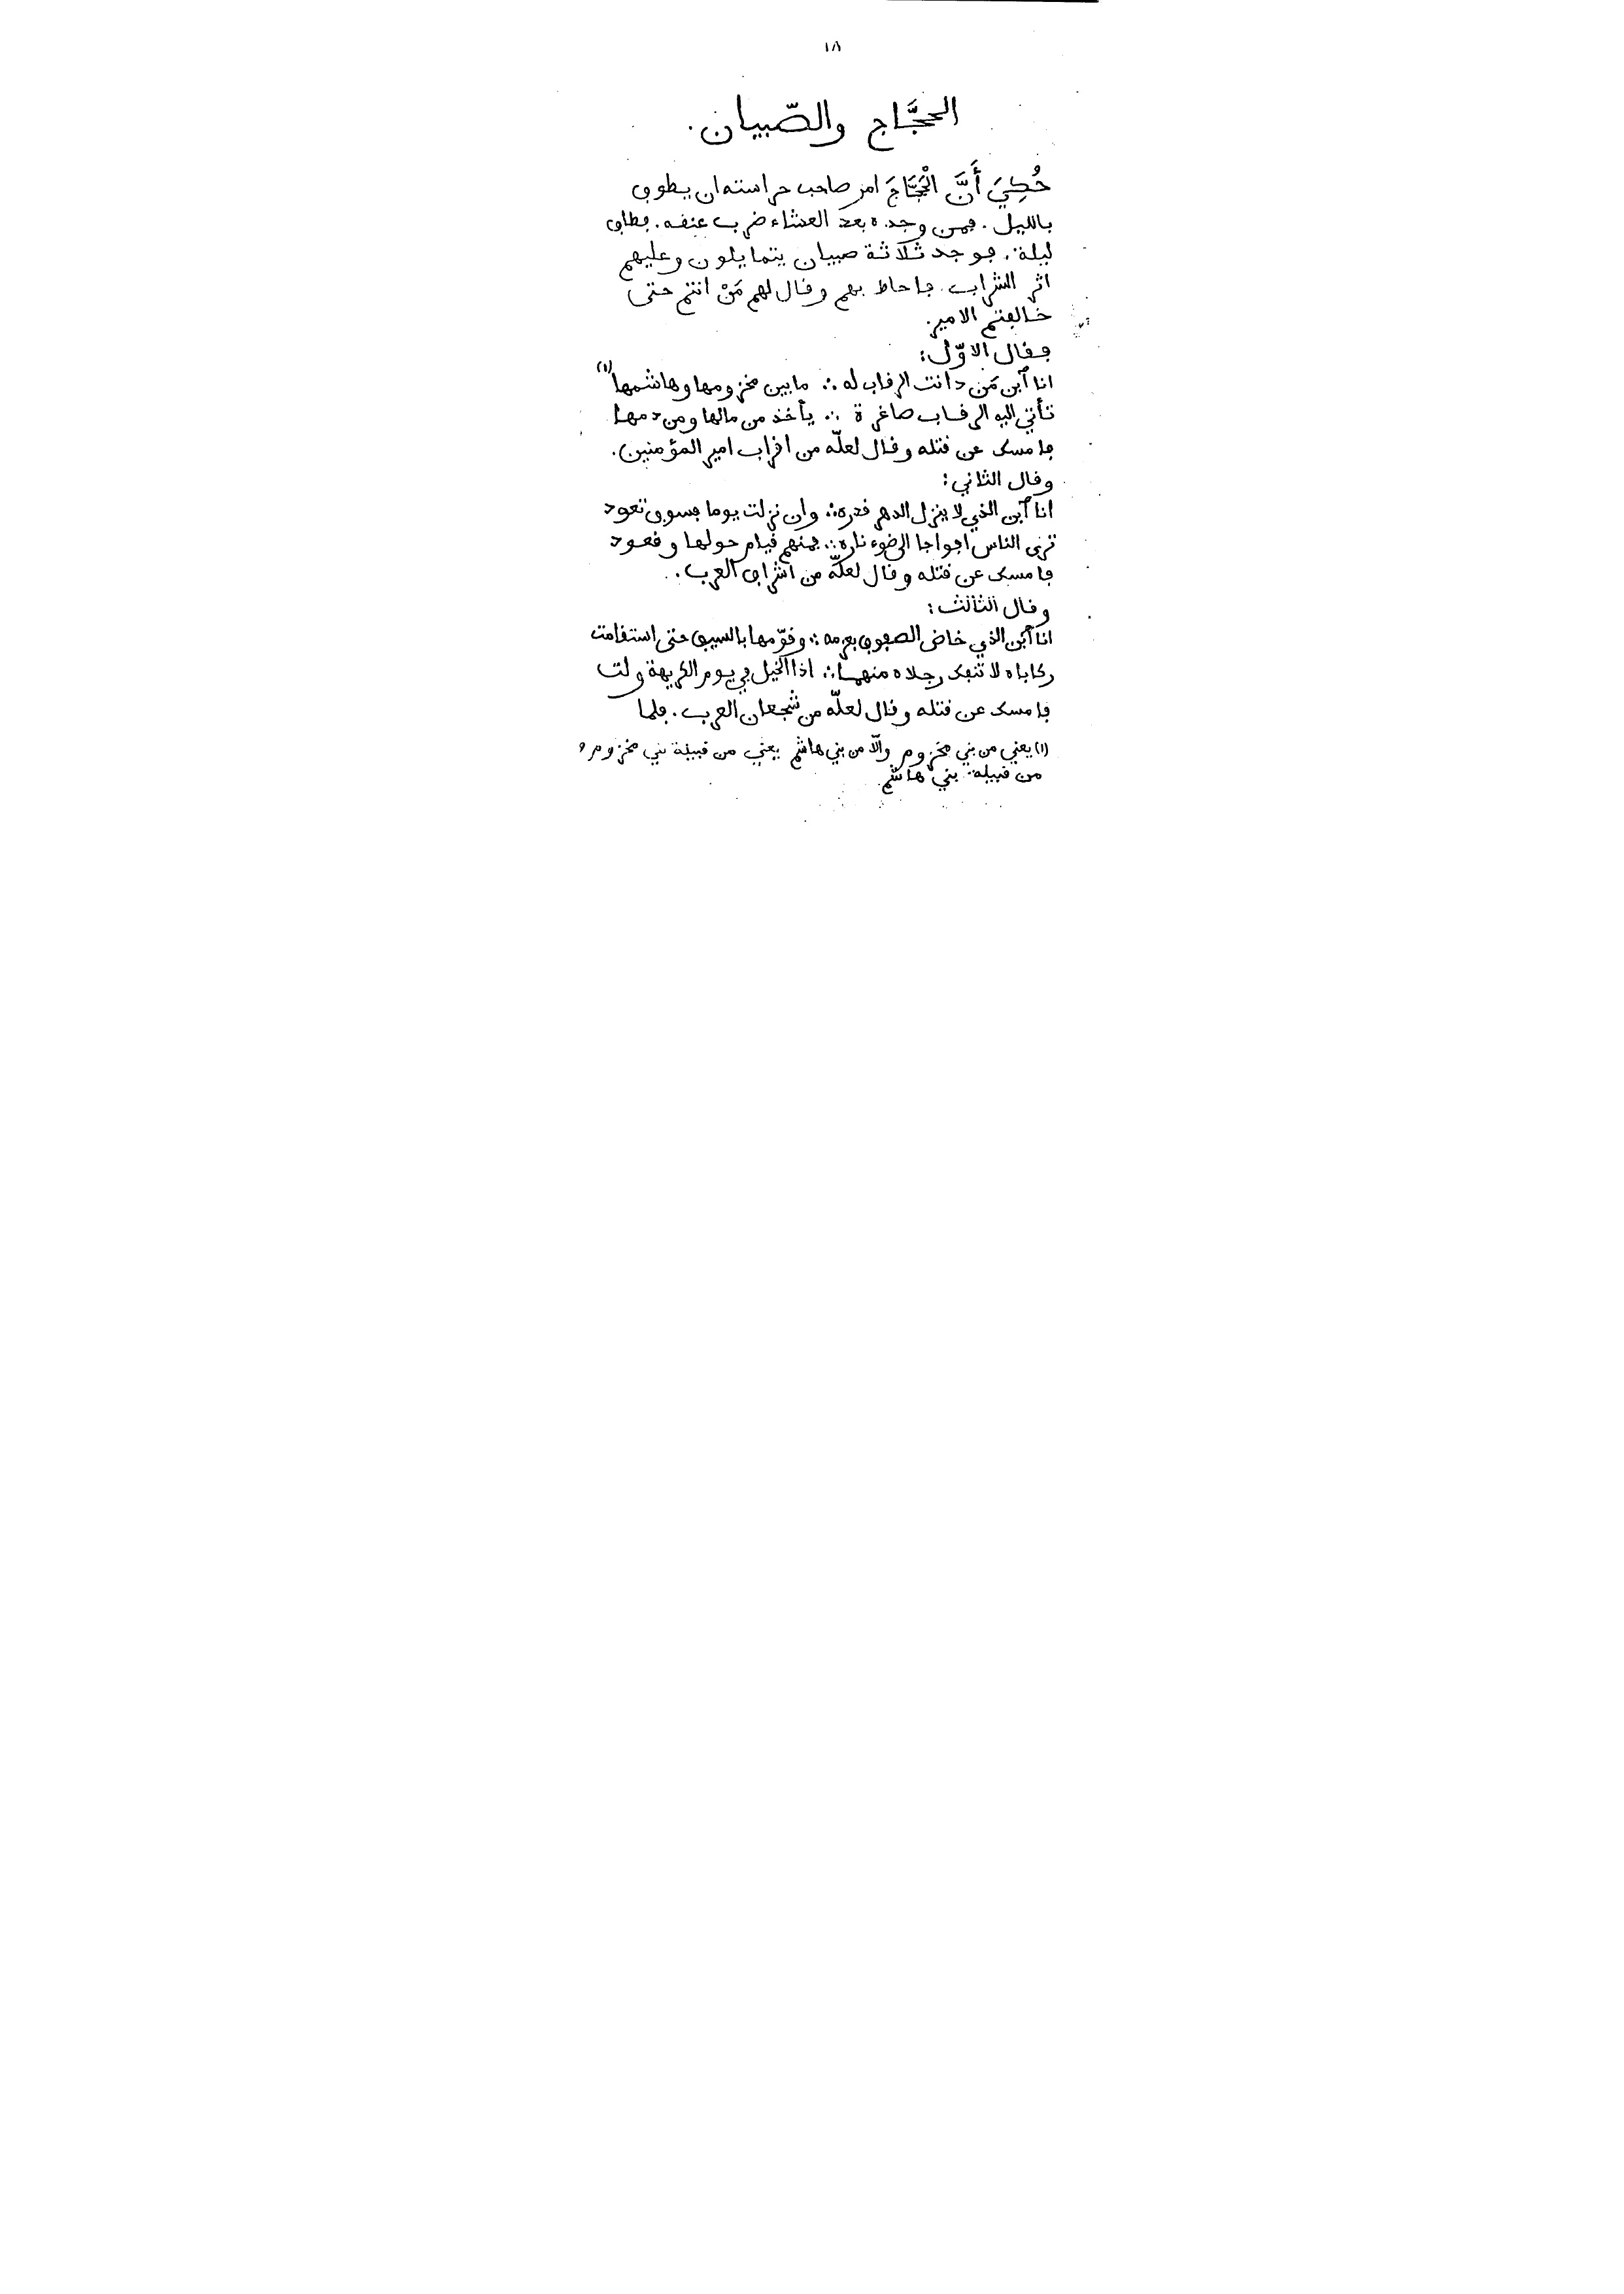 ١٨
الحجَّاج والصّبيان.
حُكِيَ أَنَّ الْحَجَّاجَ امر صاحب حراسته ان يطوف
بالليل. فمن وجده بعد العشاء ضرب عنقه. فطاف
ليلة. فوجد ثلاثة صبيان يتمايلون وعليهم
اثر الشراب. فاحاط بهم وقال لهم مَنْ انتم حتى
خالفتم الامير.
فقال الاوّل:
انا ٱبن مَن دانت الرقاب له ∴ ما بين مخزومها وهاشمها (١)
تأتي اليه الرقاب صاغرة ∴ يأخذ من مالها ومن دمها
فامسك عن قتله وقال لعلّه من اقراب امير المؤمنين.
وقال الثاني:
انا ٱبن الذي لا ينزل الدهر قدره ∴ وان نزلت يوما فسوف تعود
ترى الناس افواجا الى ضوء ناره ∴ فمنهم قيام حولها وقعود
فامسك عن قتله وقال لعلّه من اشراف العرب.
وقال الثالث:
انا ٱبن الذي خاض الصفوف بعزمه ∴ وقوّمها بالسيف حتى استقامت
ركاباه لا تنفك رجلاه منهما ∴ اذا الخيل في يوم الكريهة ولت
فامسك عن قتله وقال لعلّه من شجعان العرب. فلما
(١) يعني من بني مخزوم والّا من بني هاشم يعني من قبيلة بني مخزوم و
من قبيلة بني هاشم.